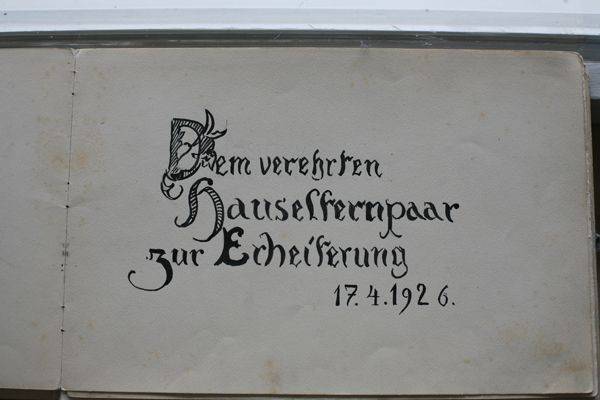 Dem verehrten
Hauselternpaar
zur Erheiterung
17.4.1926.